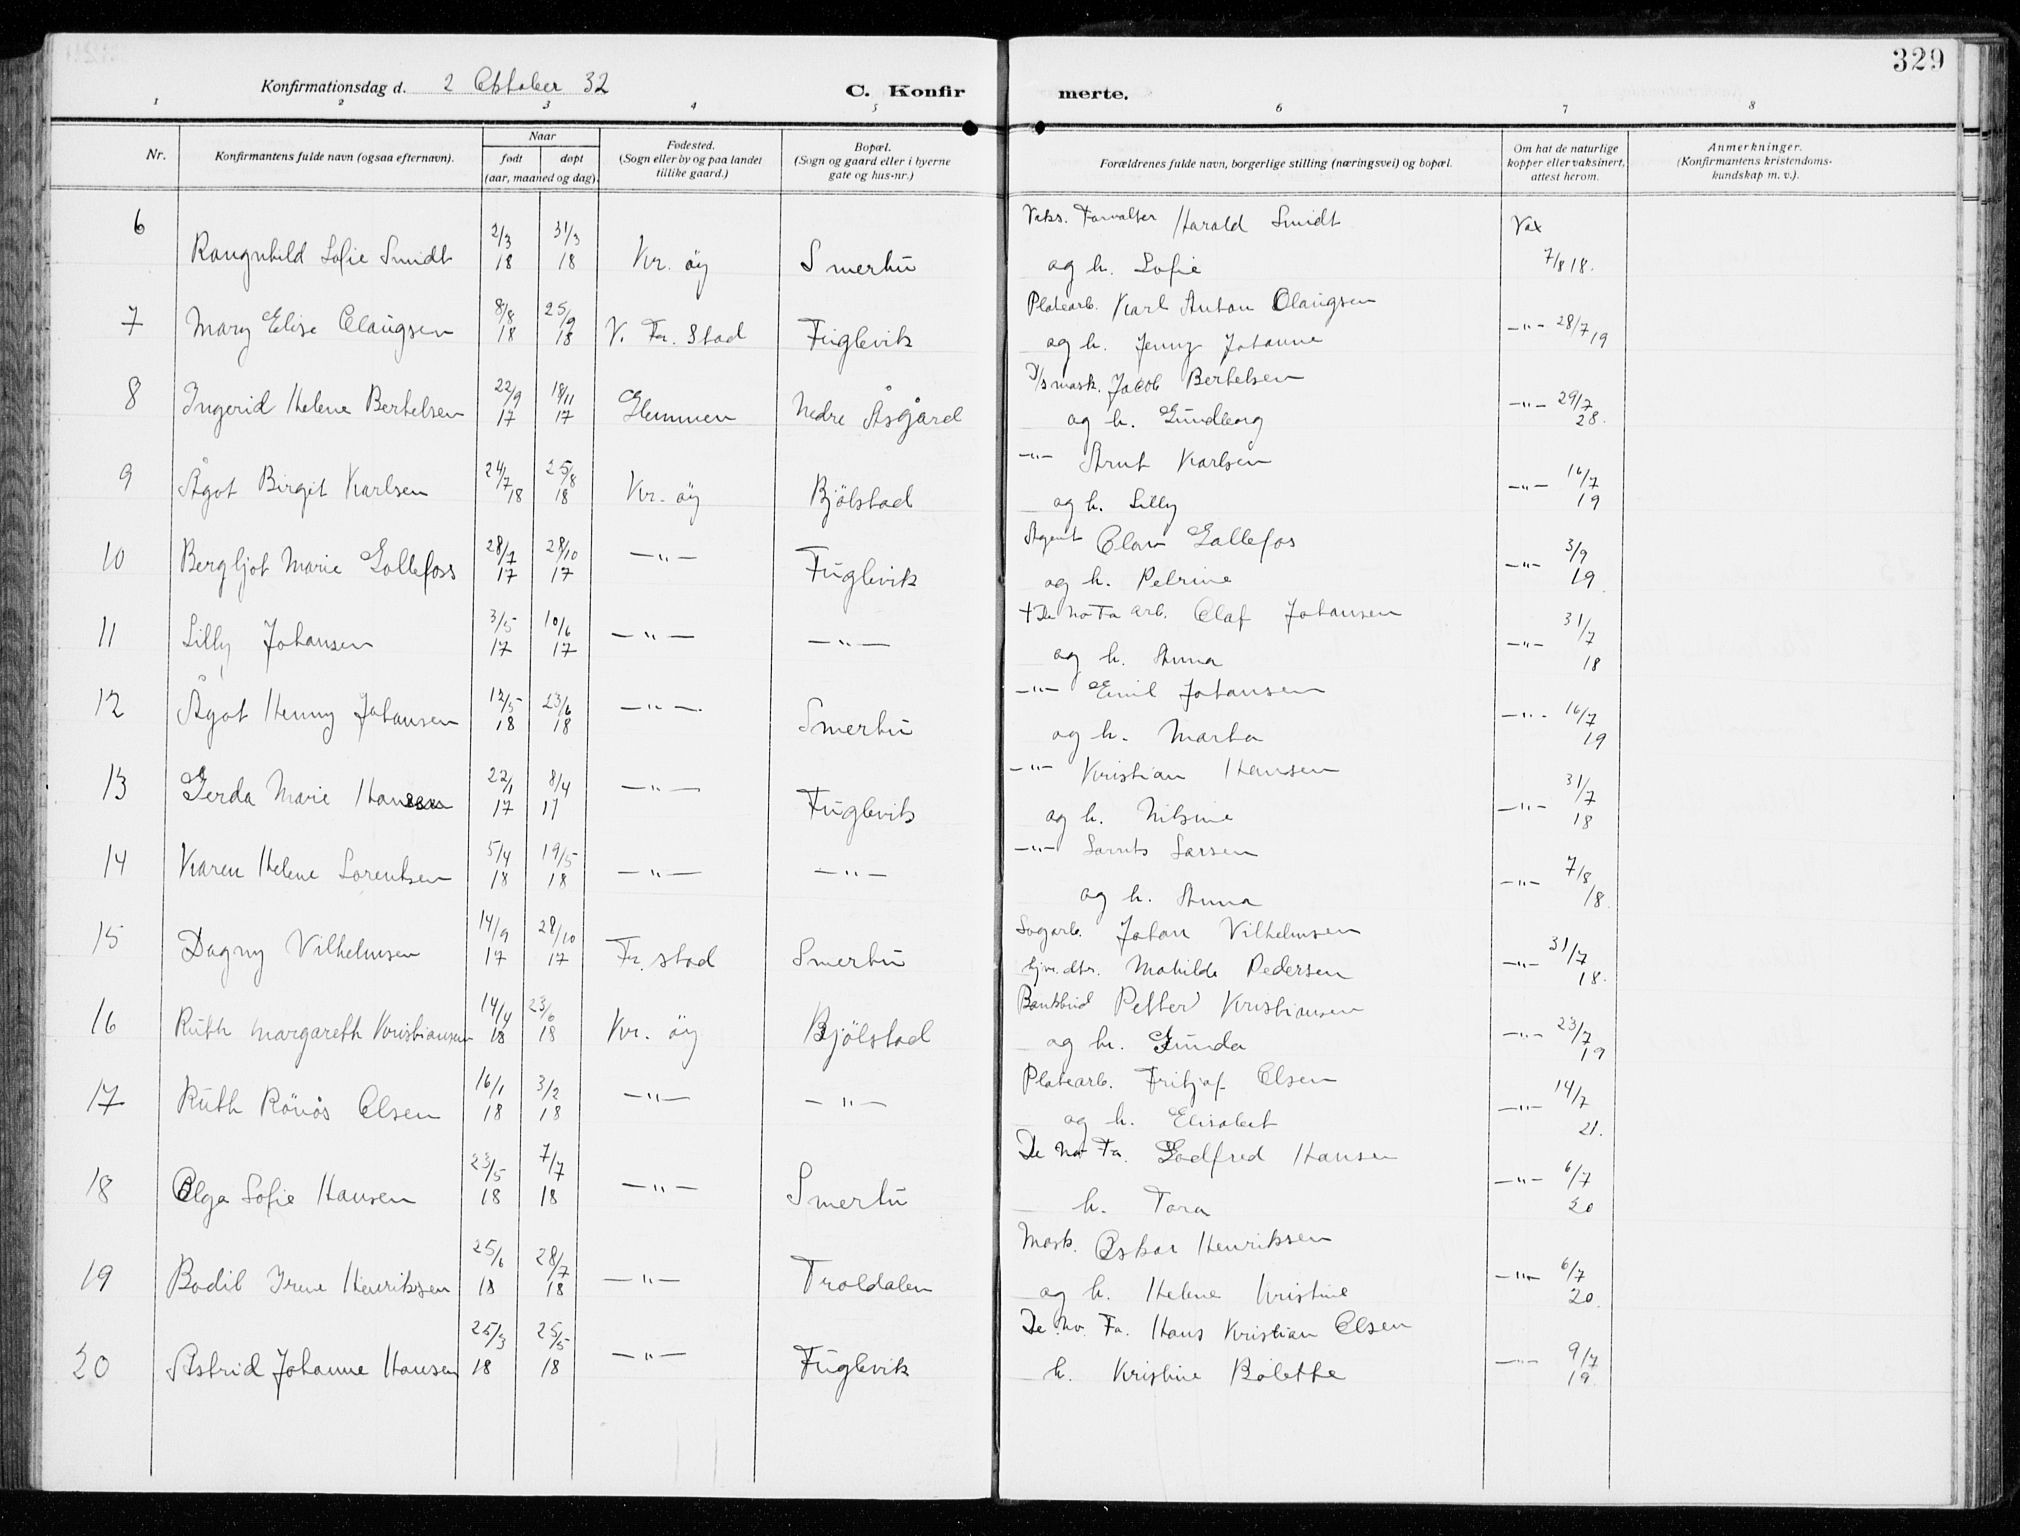 329
Konfirmationsdag d. 2 Oktober 32 C. Konfirmerte.
1 2 3 4 5 6 7 8
Nr. Konfirmantens fulde navn (ogsaa efternavn). Naar født døpt (aar, maaned og dag). Fødested. (Sogn eller by og paa landet tillike gaard.) Bopæl. (Sogn og gaard eller i byerne gate og hus-nr.) Forældrenes fulde navn, borgerlige stilling (næringsvei) og bopæl. Om hat de naturlige kopper eller vaksinert, attest herom. Anmerkninger. (Konfirmantens kristendomskundskap m. v.).
6 Rangnhild Sofie Smidt 2/3 18 31/3 18 Kr. öy Smertu Harald Smidt Vax
og h. Sofie 7/8 18.
7 Mary Elise Olaugsen 8/8 18 25/9 18 V. Fr. Stad Fuglevik Platearb. Karl Anton Olaugsen
og h. Jenny Johanne —"— 28/7 19
8 Ingerid Helene Bertelsen 22/9 17 18/11 17 Glemmen Nedre Åsgård D/s mask. Jacob Bertelsen
og h. Gundborg —"— 29/7 28.
9 Ågot Birgit Karlsen 24/7 18 25/8 18 Kr. öy Bjölstad —"— Arnt Karlsen
og h. Lilly —"— 16/7 19
10 Bergljot Marie Gallefoss 28/7 17 28/10 17 —"— Fuglevik Agent Olav Gallefos
og h. Petrine —"— 3/9 19.
11 Lilly Johansen 3/5 17 10/6 17 —"— —"— † De No Fa arb. Olaf Johansen
og h. Anna —"— 31/7 18
12 Ågot Henny Johansen 12/5 18 23/6 18 —"— Smertu —"— Emil Johansen
og h. Marta —"— 16/7 19
13 Gerda Marie Hansen 22/1 17 8/4 17 —"— Fuglevik —"— Kristian Hansen
og h. Nilsine —"— 31/7 18
14 Karen Helene Lorentsen 5/4 18 19/5 18 —"— —"— —"— Larsen
og h. Anna —"— 7/8 18.
15 Dagny Vilhelmsen 14/9 17 28/10 17 Fr. stad Smertu Sagarb. Johan Vilhelmsen
Matilde Pedersen —"— 31/7 18.
16 Ruth Margareth Kristiansen 14/4 18 23/6 18 Kr. öy Bjölstad Bankbud Petter Kristiansen
og h. Gunda —"— 23/7 19
17 Ruth Rönös Olsen 16/1 18 3/2 18 —"— —"— Platearb. Fritjof Olsen
og h. Elisabet —"— 14/7 21.
18 Olga Sofie Hansen 23/5 18 7/7 18 —"— Smertu De No Fa. Godfred Hansen
h. Tora —"— 6/7 20
19 Bodil Irene Henriksen 25/6 18 28/7 18 —"— Troldalen Mask. Oskar Henriksen
og h. Helene Kristine —"— 6/7 20.
20 Astrid Johanne Hansen 25/3 18 25/5 18 —"— Fuglevik De No. Fa. Hans Kristian Olsen
h. Kristine Bolette —"— 9/7 19.